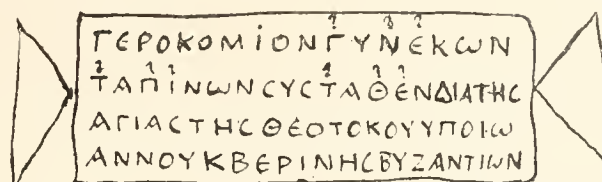 ΓΕΡΟΚΟΜΙΟΝΓΥΝΕΚωΝ
ΤΑΠΙΝωΝCΥCΤΑΘΕΝΔΙΑΤΗC
ΑΓΙΑCΤΗCΘΕΟΤΟΚΟΥΥΠΟΙω
ΑΝΝΟΥΚΒΕΡΙΝΗCΒΥΖΑΝΤΙωΝ